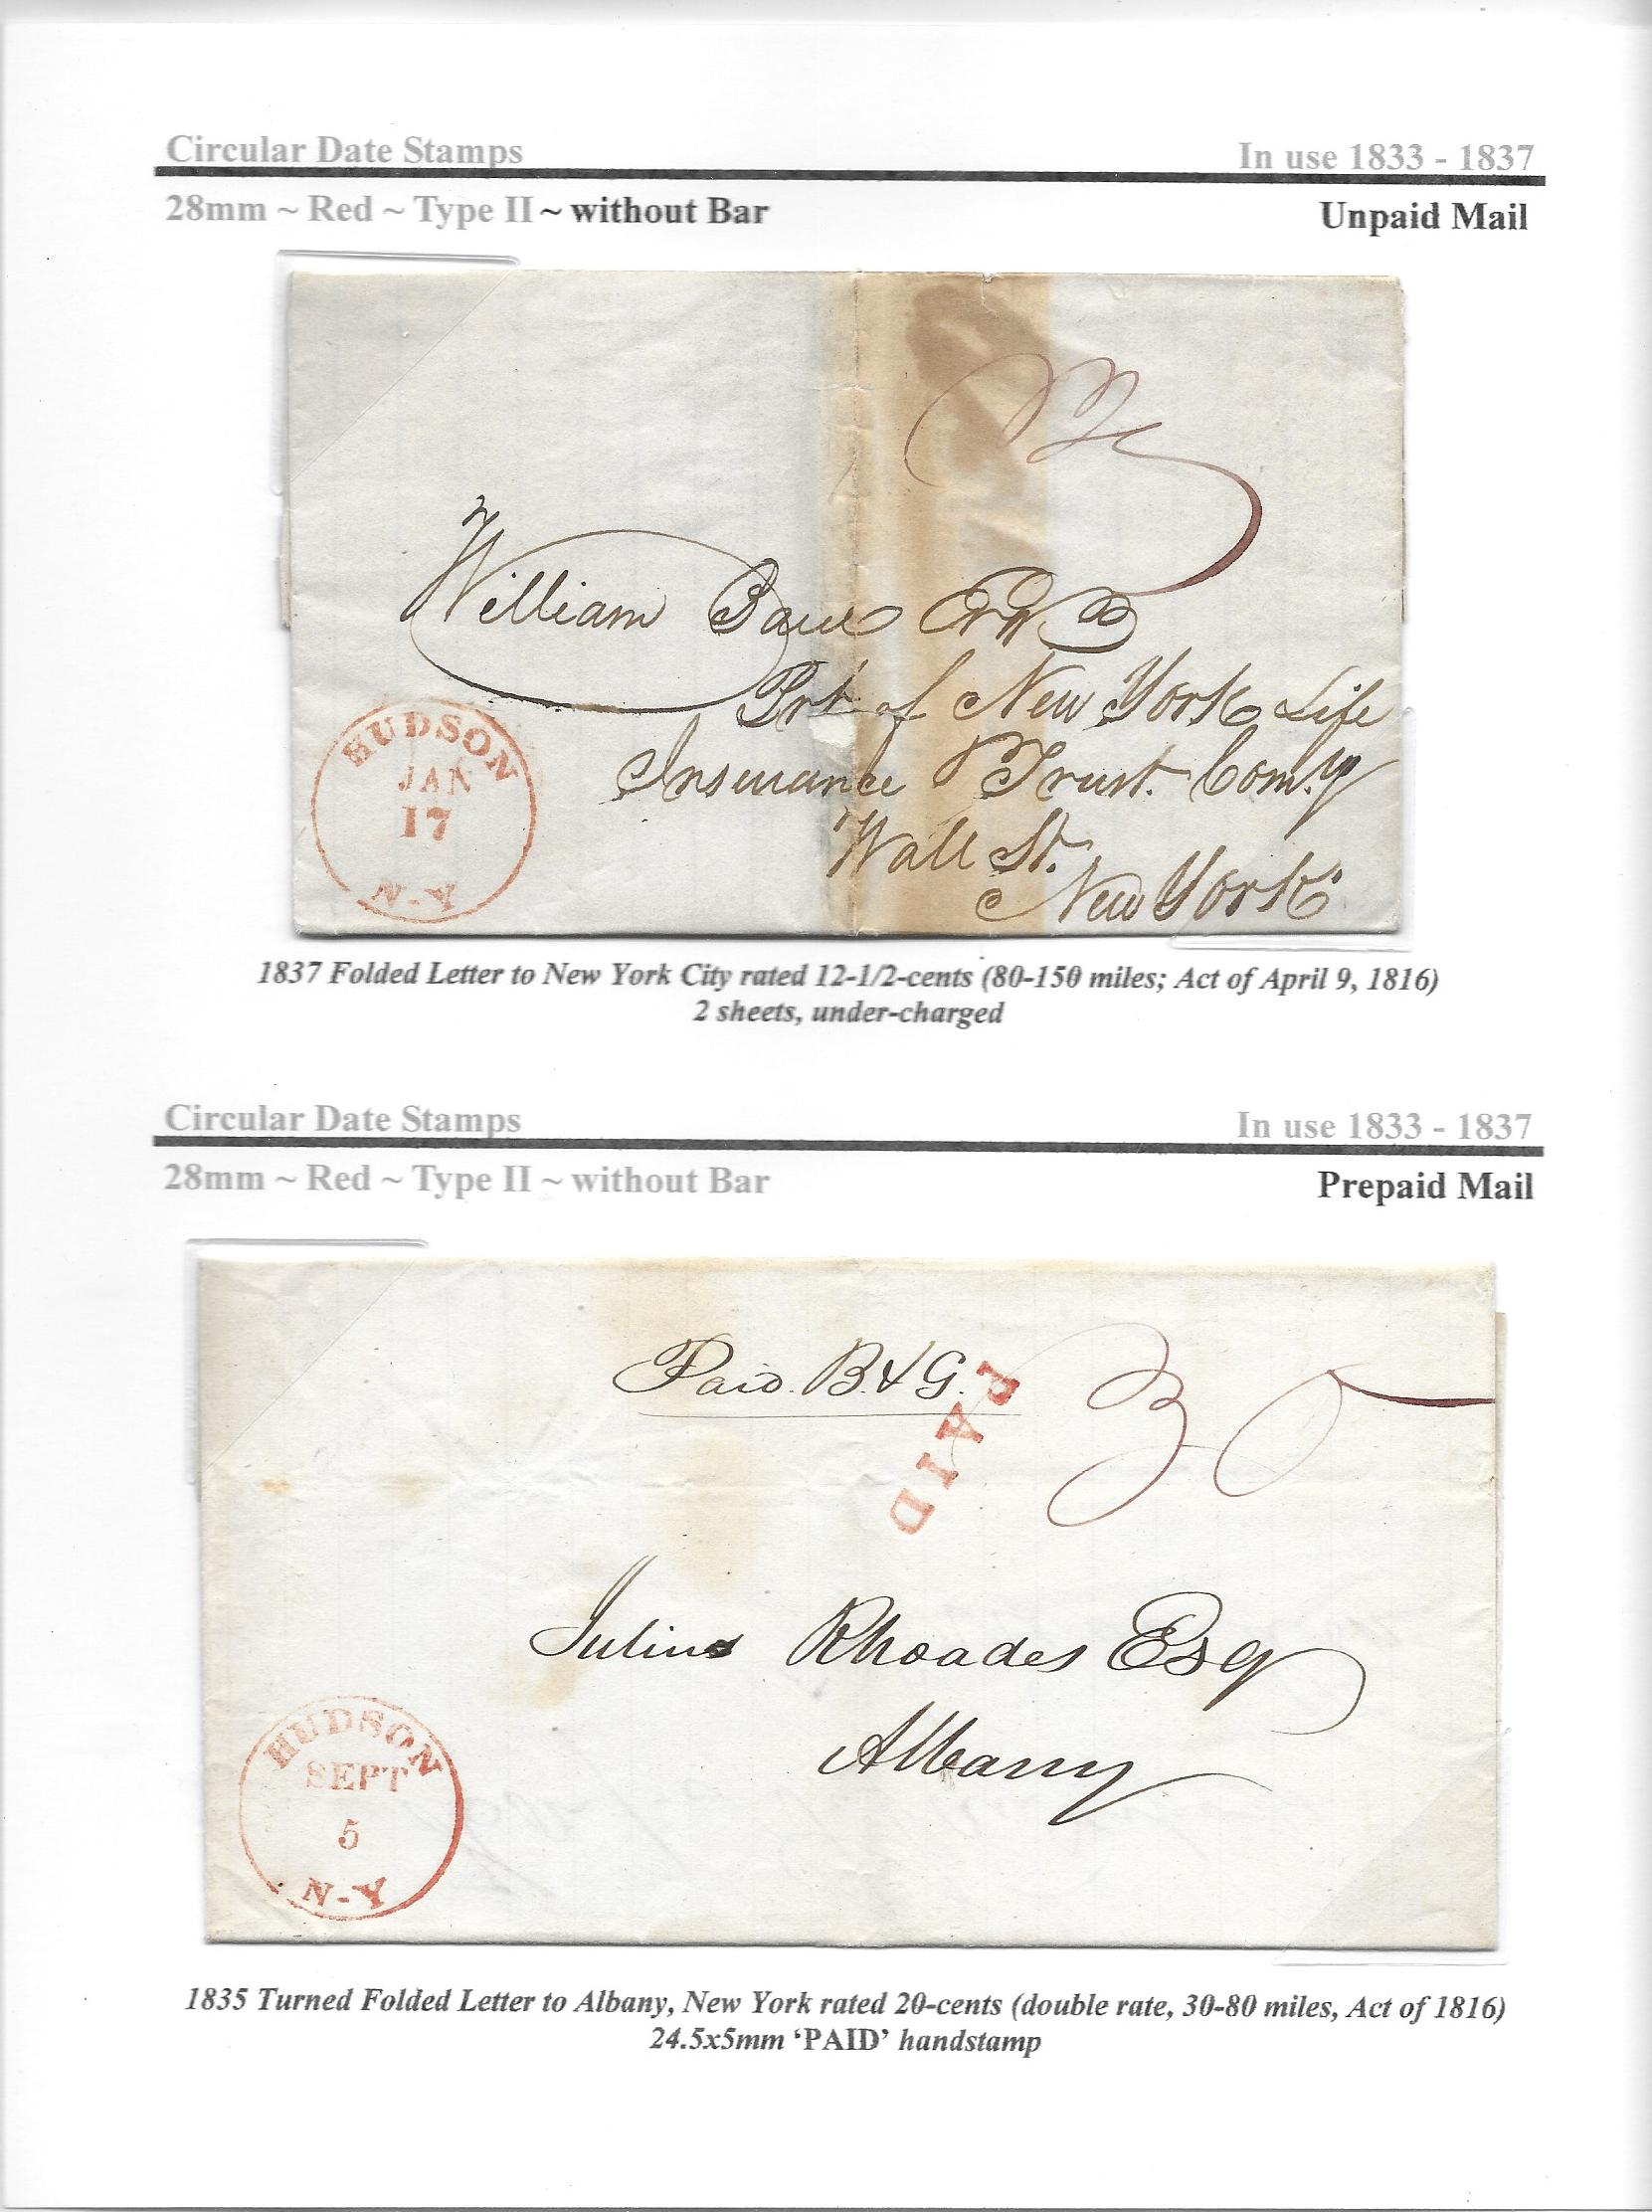 Circular Date Stamps
In use 1833 - 1837
28mm ~ Red ~ Type II ~ without Bar
Unpaid Mail
William
Prt of New York Life
Insurance & Trust Comy
Wall St.
New York
HUDSON
JAN
17
N-Y
1837 Folded Letter to New York City rated 12-1/2-cents (80-150 miles; Act of April 9, 1816)
2 sheets, under-charged
Circular Date Stamps
In use 1833 - 1837
28mm ~ Red ~ Type II ~ without Bar
Prepaid Mail
Paid. B. & G.
PAID
20
Julius Rhoades Esq
Albany
HUDSON
SEPT
5
N-Y
1835 Turned Folded Letter to Albany, New York rated 20-cents (double rate, 30-80 miles, Act of 1816)
24.5x5mm ‘PAID’ handstamp